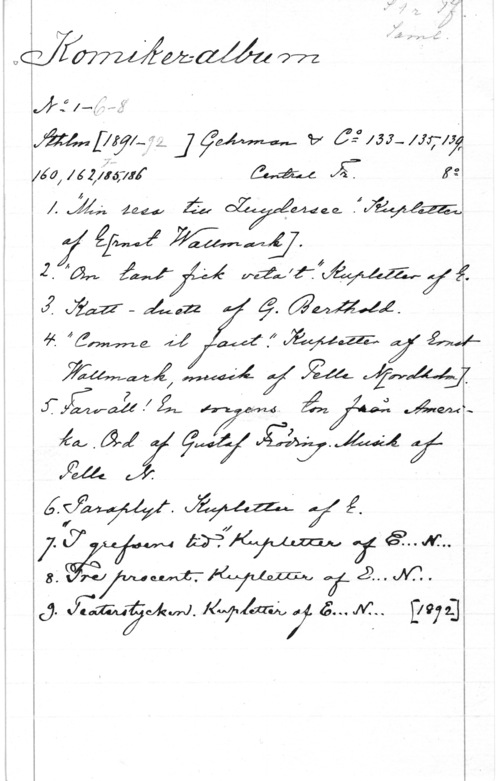 Saml.
Komiker-album
No 1-6-8
Sthlm [1891-92 ] Gehrman & Co 133-135, 139,
160, 162, 185, 186 Central Tr. 8o
1. "Min resa till Zuydersee". Kupletter
af E[rnst Wallmark].
2. "Om tant fick veta't." Kupletter af E.
3. Katt-duett af G. Berthold.
4. "Comme il faut". Kupletter af Ernst
Wallmark, musik af Pelle N[ordholm].
5. Farväll! En sorgens ton från Ameri-
ka. Ord af Gustaf Fröding. Musik af
Pelle N.
6. Paraplyt. Kupletter af E.
7. "I grefvens tid". Kupletter af E... N...
8. Tre procent. Kupletter af E... N...
9. Teaterstycken. Kupletter af E... N... [1892]